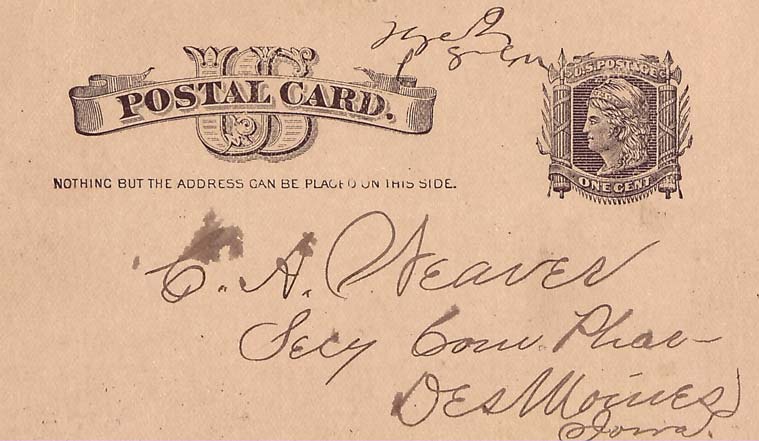 US
POSTAL CARD.
U.S. POSTAGE
ONE CENT
NOTHING BUT THE ADDRESS CAN BE PLACED ON THIS SIDE.
C. A. Weaver
Secy Com Phar-
Des Moines
Iowa.